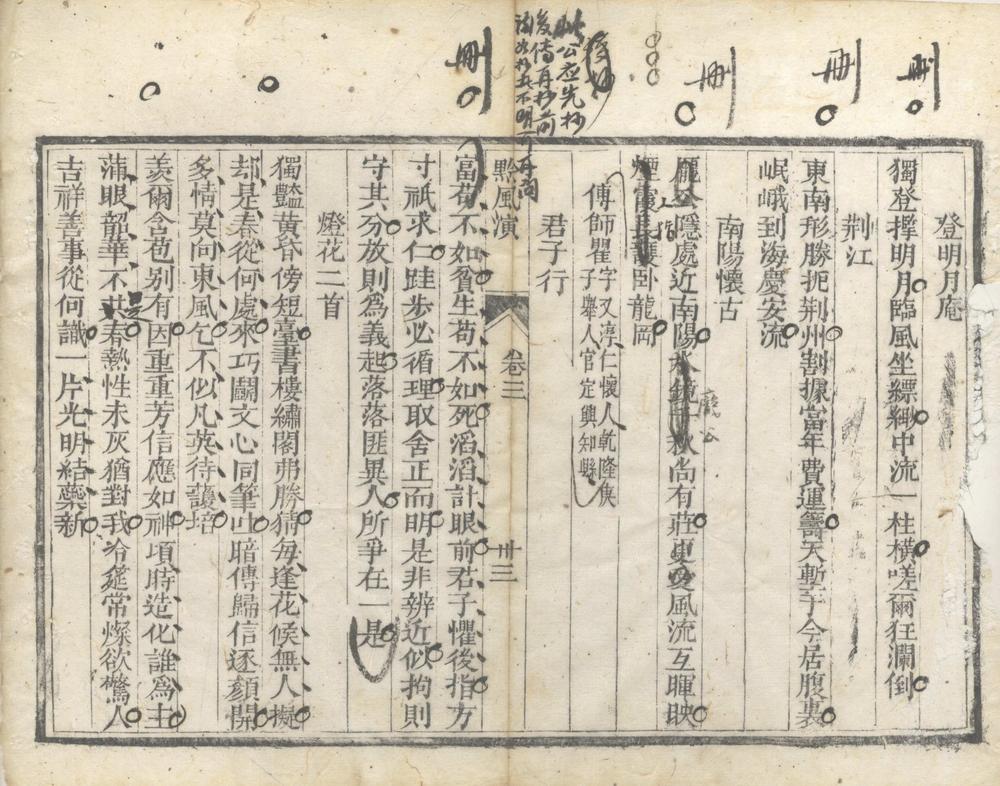 刪
刪
刪
後抄
此公应先抄
後傳再抄前
刪
登明月庵
獨登擇明月臨風坐縹緲中流一柱橫嗟爾狂瀾倒
荆江
東南形勝扼荆州割據當年費運籌天塹于今居腹裏
岷峨到海慶安流
南陽懷古
龐公隱處近南陽水鏡千秋尚有莊更愛風流互暉映
龐公
煙霞長護卧龍岡
傅師瞿字又淳仁懷人乾隆
子舉人官定興知縣
君子行
黔風演
卷三
卅三
富苟不如貧生苟不如死滔滔計眼前君子懼後指方
寸祇求仁跬步必循理取舍正而明是非辨近似拘則
守其分放則為義起落落匪異人所爭在一是
燈花二首
獨豔黄昏傍短臺書樓繡閣弗勝猜每逢花候無人擬
却是春從何處來巧鬭文心同筆吐暗傳歸信逐顏開
多情莫向東風乞不似凡英待護培
羨爾含苞別有因重重芳信應如神頃時造化誰為主
滿眼韶華不共春熱性未灰猶對我冷筵常燦欲驚人
吉祥善事從何識一片光明結蘂新